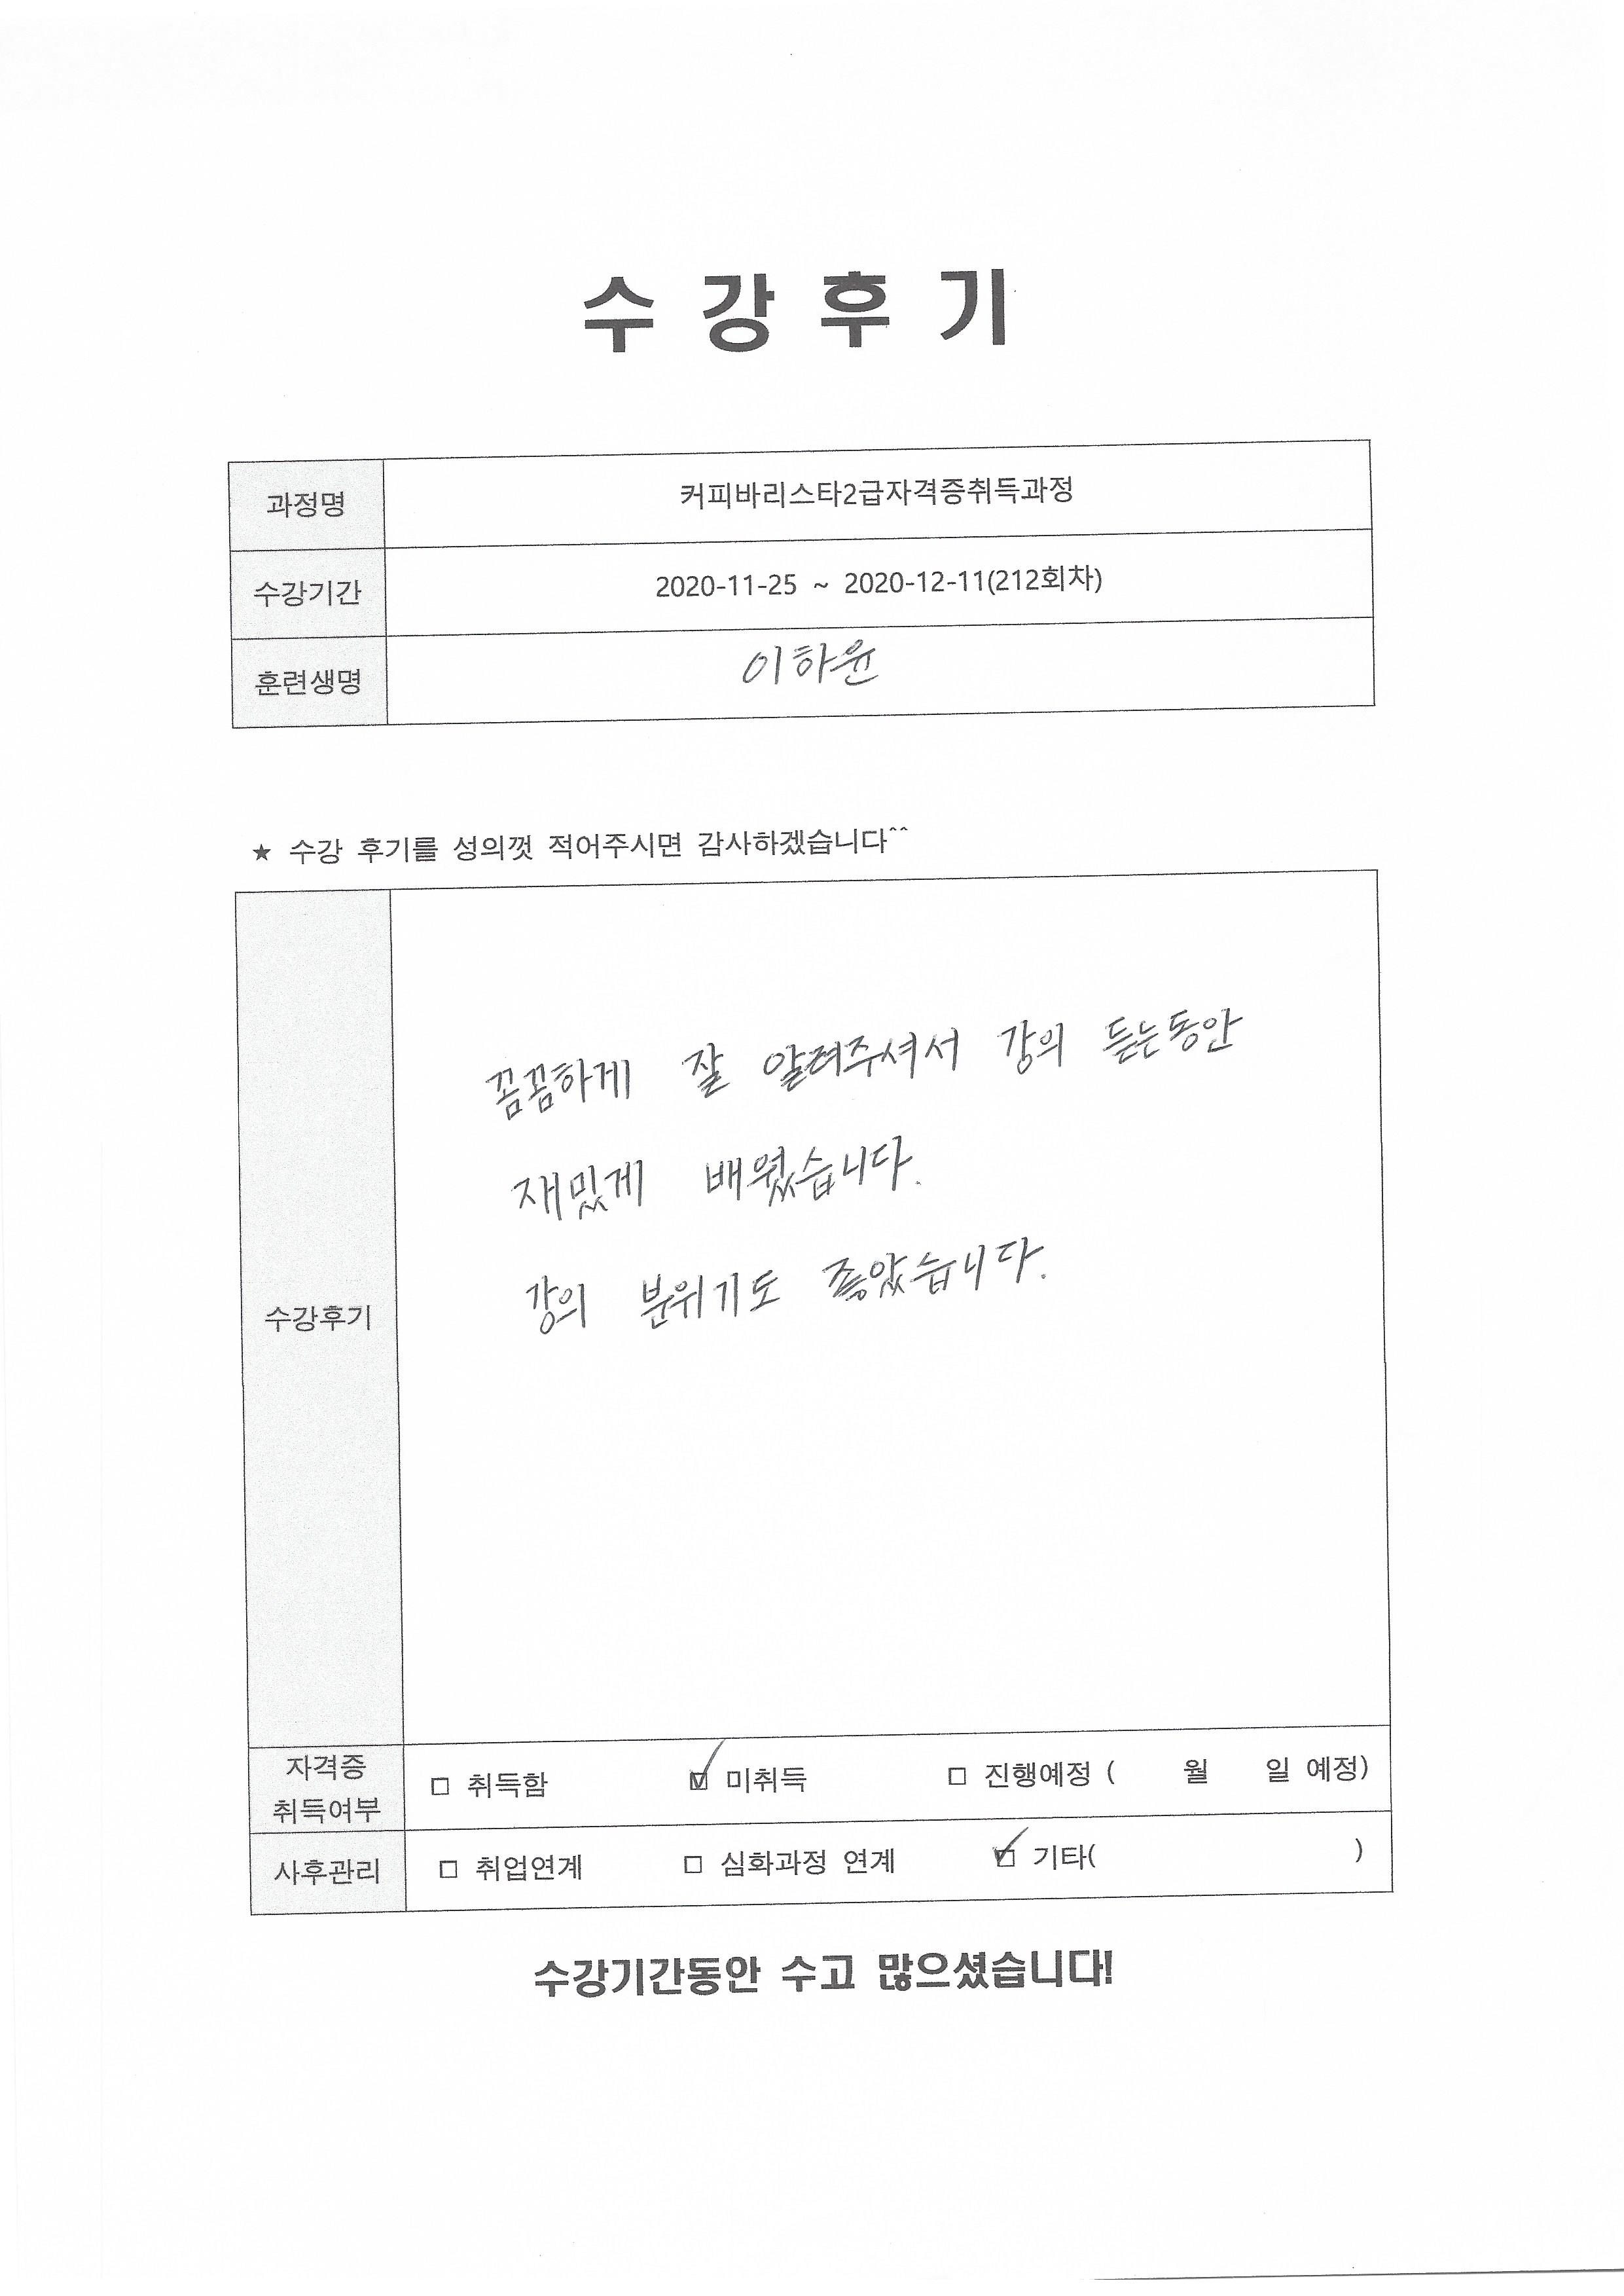 수 강 후 기
과정명 커피바리스타2급자격증취득과정
수강기간 2020-11-25 ~ 2020-12-11(212회차)
훈련생명 이하윤
★ 수강 후기를 성의껏 적어주시면 감사하겠습니다^^
꼼꼼하게 잘 알려주셔서 강의 듣는동안
재밌게 배웠습니다.
강의 분위기도 좋았습니다.
수강후기
자격증
취득여부 □ 취득함 ☑ 미취득 □ 진행예정 ( 월 일 예정)
사후관리 □ 취업연계 □ 심화과정 연계 ☑ 기타( )
수강기간동안 수고 많으셨습니다!